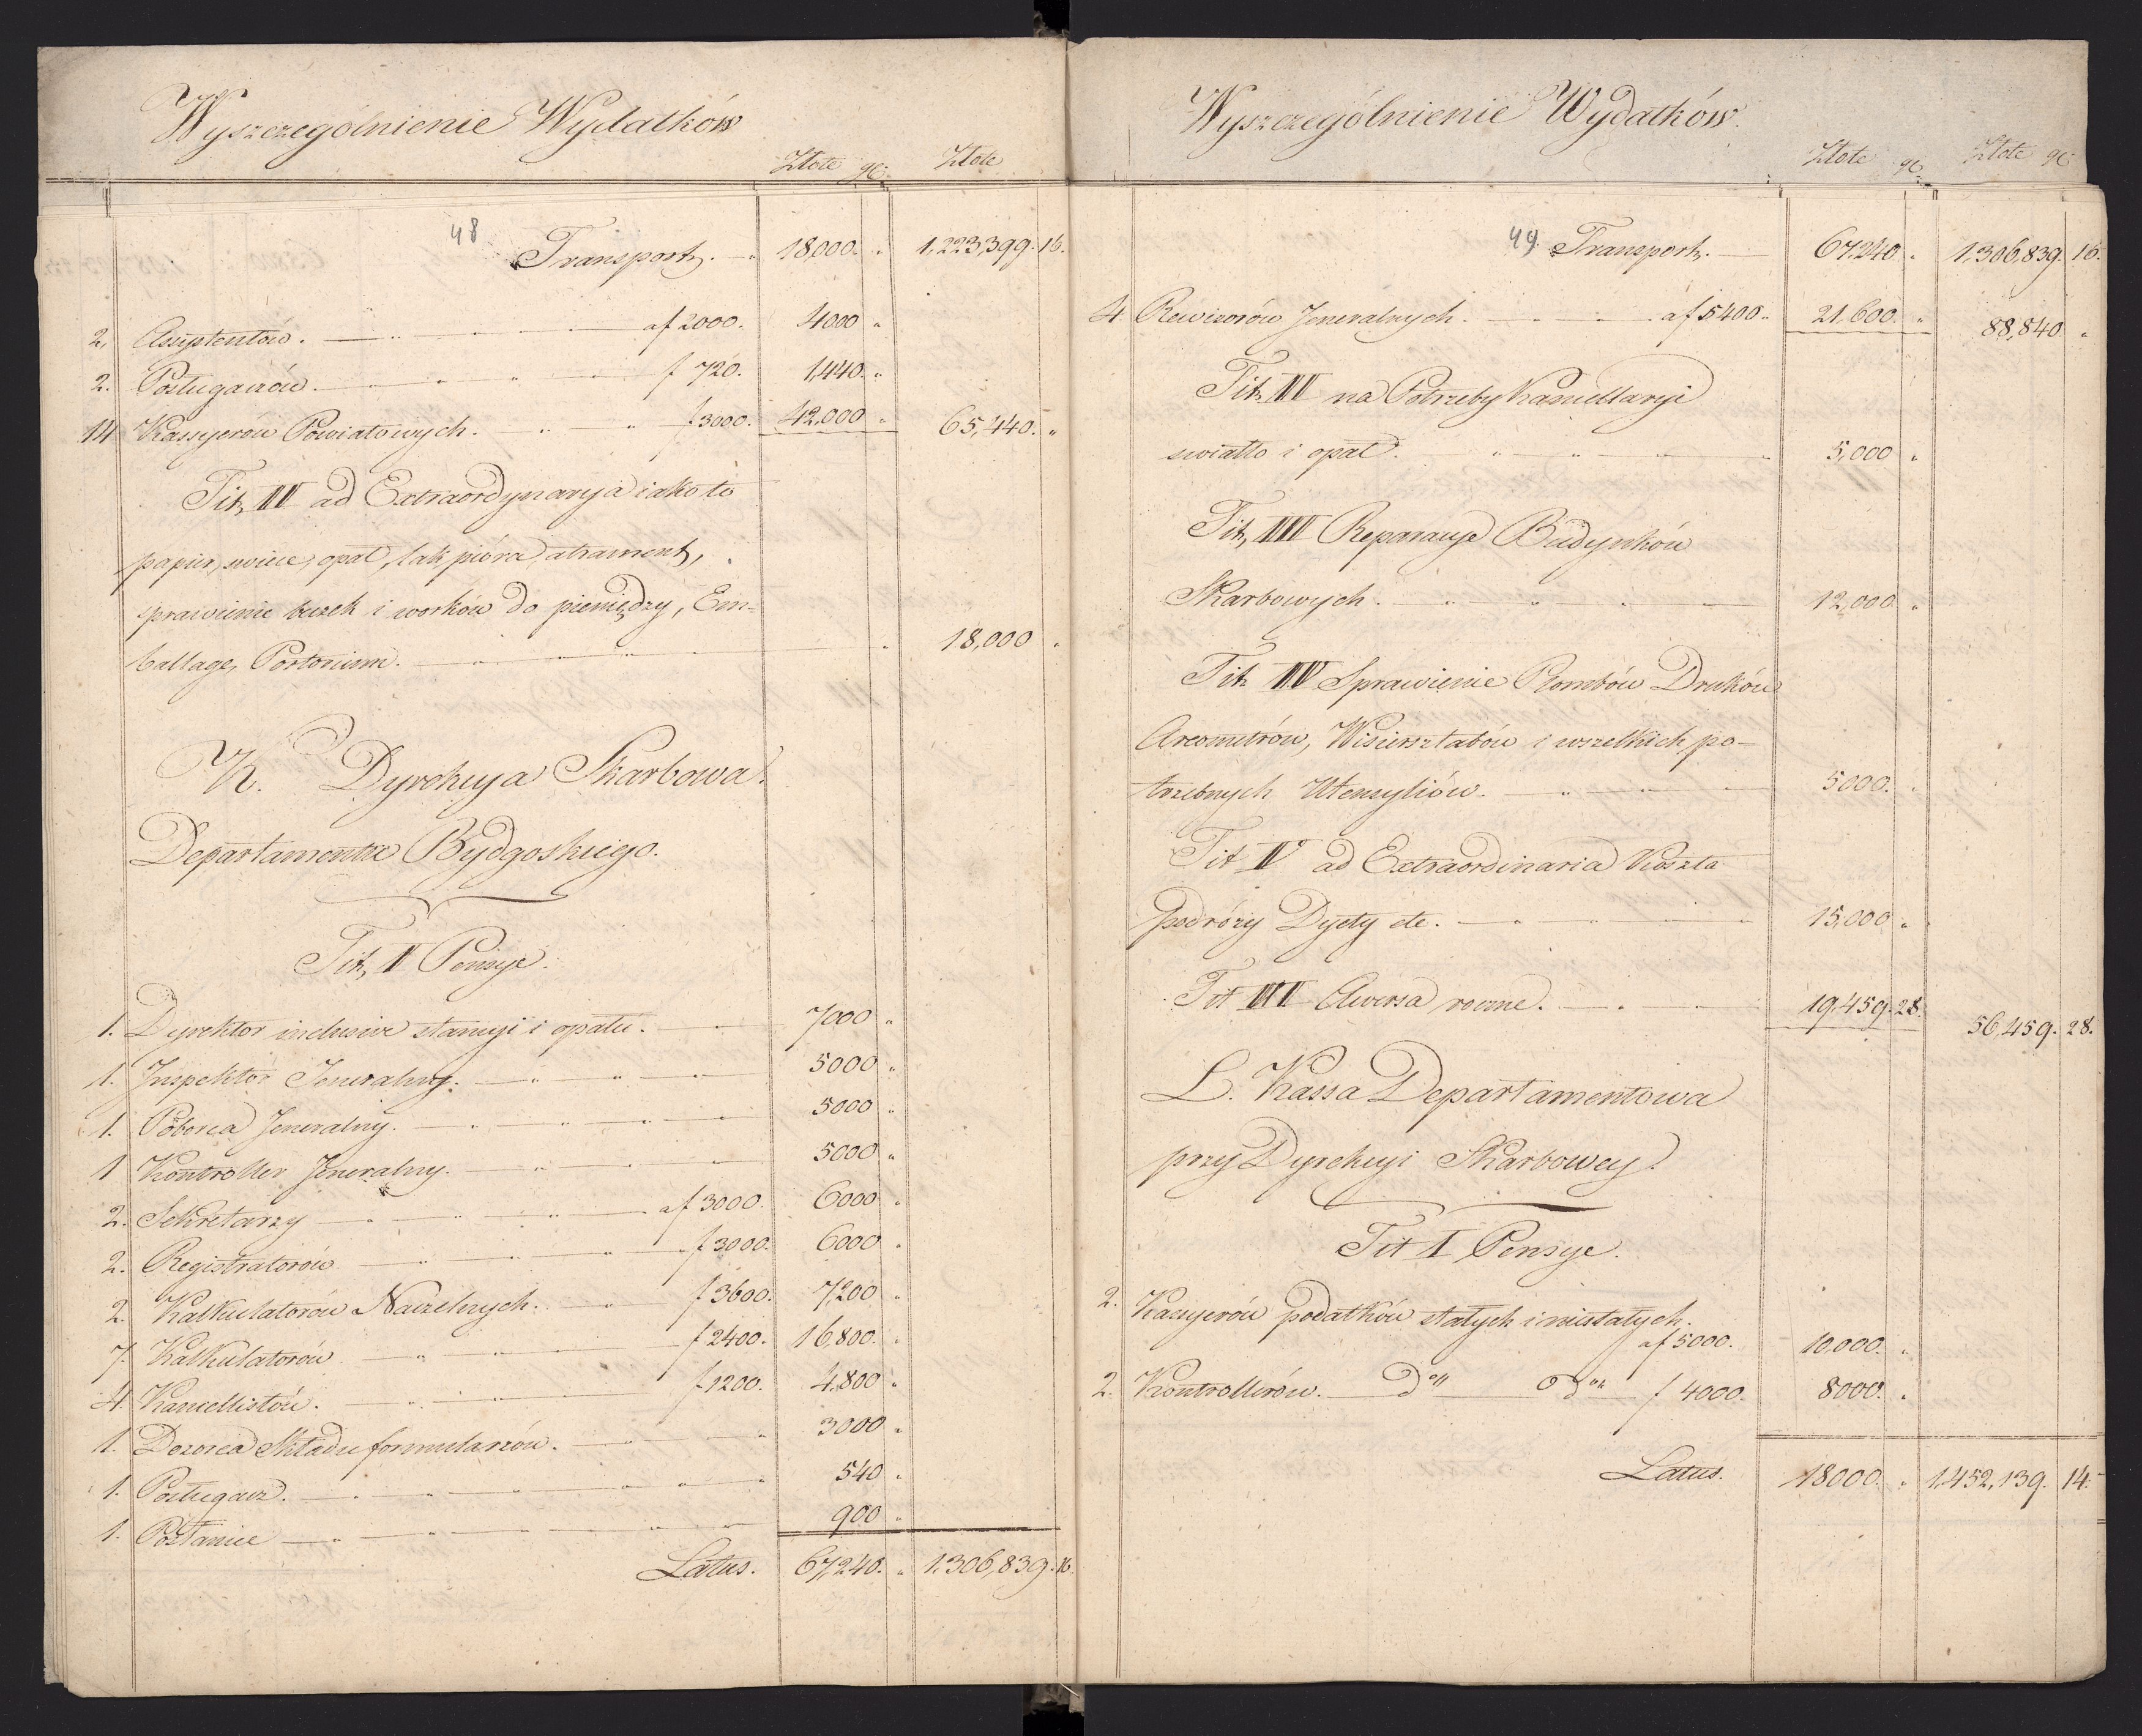 Wyszczególnienie Wydatków
Złote gr: Złote
48
Transport. 18,000. " 1,223,399. 16.
2. Assystentów. af 2000. 4000 "
2. Posługaczów. f 720. 1,440. "
14 Kassyerów Powiatowych. f 3000. 42,000 " 65,440. "
Tit, II ad Extraordynarya iako to
papier, swiece, opał, lak pióra, atrament,
sprawienie beczek i worków do pieniędzy, Em-
ballage, Portorium. " 18,000 "
K. Dyrekcya Skarbowa.
Departamentu Bydgoskiego.
Tit, I Pensye.
1. Dyrektor inclusive stancyi i opału. 7000 "
1. Inspektor Jeneralny. 5000 "
1. Poborca Jeneralny. 5000 "
1 Kontroller Jeneralny. 5000 "
2. Sekretarzy af 3000. 6000 "
2. Registratorów f 3000. 6000 "
2. Kalkulatorów Naczelnych. f 3600. 7,200 "
7. Kalkulatorów f 2400. 16,800. "
4. Kancellistów. f 1200. 4,800 "
1. Dozorca Składu formularzów. 3000 "
1. Posługacz. 540 "
1. Posłaniec 900 "
Latus. 67,240. " 1.306,839. 16.
Wyszczególnienie Wydatków.
Złote gr: Złote gr:
49. Transport. 67.240 " 1,306,839. 16.
4 Rewizorów Jeneralnych. af 5400. 21,600. " 88,840 "
Tit, II na Potrzeby Kancellaryi
swiatło i opał. 5,000 "
Tit, III Reparacye Budynków
Skarbowych. 12,000 "
Tit. IV Sprawienie Plombów Druków
Areometrów, Wisiersztabów i wszelkich po-
trzebnych Utensyliów. 5000. "
Tit V ad Extraordinaria Koszta
podróży Dyety etc. 15,000 "
Tit VI Aversa roczne. 19,459. 28. 56,459. 28.
L. Kassa Departamentowa
przy Dyrekcyi Skarbowey.
Tit I Pensye.
2. Kassyerów podatków stałych i niestałych.
af 5000. 10,000. "
2. Kontrollerów. Do do f 4000. 8000. "
Latus. 18000. " 1,452,139. 14.